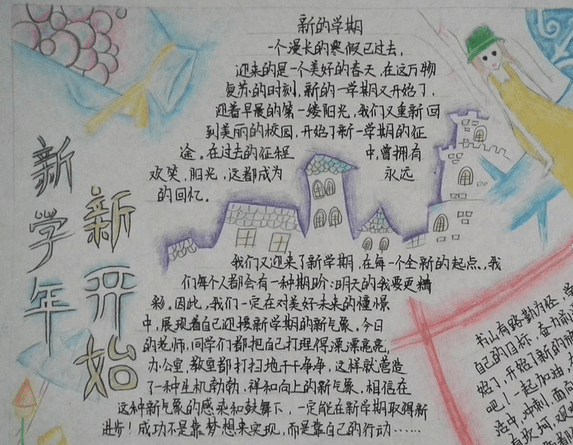 新的学期
一个漫长的寒假已过去,
迎来的是一个美好的春天,在这万物
复苏的时刻,新的一学期又开始了,
迎着早晨的第一缕阳光,我们又重新回
到美丽的校园,开始了新一学期的征
途。在过去的征程中,曾拥有
欢笑,阳光,这都成为永远
的回忆。
新学年
新开始
我们又迎来了新学期,在每一个全新的起点,我
们每个人都会有一种期盼:明天的我要更精
彩,因此,我们一定在对美好未来的憧憬
中,展现着自己迎接新学期的新气象。今日
的老师,同学们都把自己打理得漂漂亮亮,
办公室,教室都打扫地干干净净,这样就营造
了一种生机勃勃,祥和向上的新气象。相信在
这种新气象的感染和鼓舞下,一定能在新学期取得新
进步!成功不是靠梦想来实现,而是靠自己的行动……
书山有路勤为径,学
自己的目标,奋力前
始了,开始了新的
吧!一起加油,
选中,冲刺,面向